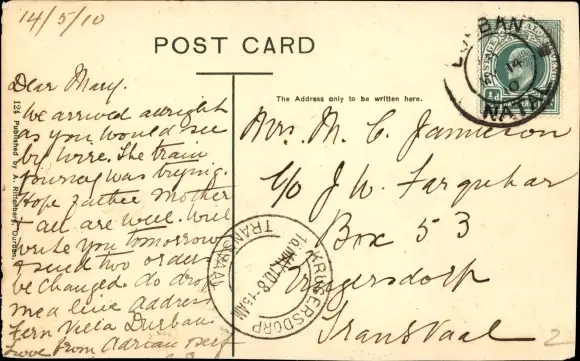 14/5/10
POST CARD
The Address only to be written here.
124 Published by A. Rittelbeck, Durban.
Dear Mary.
We arrived allright
as you would see
by wire. The train
journey was trying.
Hope father Mother
& all are well. Will
write you tomorrow
I send two orders
be changed. do drop
me a line address
Fern Villa Durban.
Love from Adrian self
Mrs. M. C. Jameson
C/o J. W. Farquhar
Box 53
Krugersdorp
Transvaal
DURBAN
14
NATAL
POSTAGE
KRUGERSDORP
16 MAY 10 8-15AM
TRANSVAAL
2